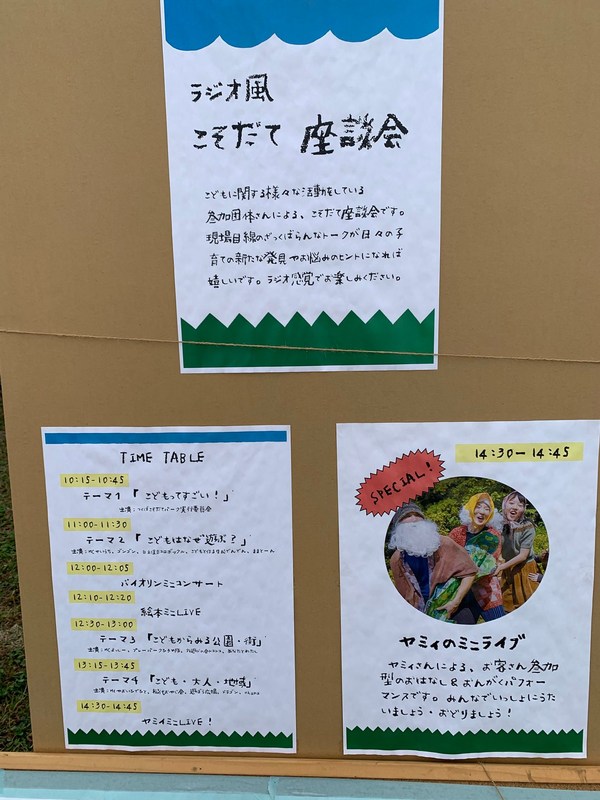 ラジオ風
こそだて 座談会
こどもに関する様々な活動をしている
参加団体さんによる、こそだて座談会です。
現場目線のざっくばらんなトークが日々の子
育ての新たな発見やお悩みのヒントになれば
嬉しいです。ラジオ感覚でお楽しみください。
TIME TABLE
10:15-10:45
テーマ1「こどもってすごい!」
11:00-11:30
テーマ2「こどもはなぜ遊ぶ?」
12:00-12:05
バイオリンミニコンサート
12:10-12:20
絵本ミニLIVE
12:30-13:00
テーマ3「こどもからみる公園・街」
13:15-13:45
テーマ4「こども・大人・地域」
14:30-14:45
ヤミィミニLIVE!
14:30-14:45
SPECIAL!
ヤミィのミニライブ
ヤミィさんによる、お客さん参加
型のおはなし&おんがくパフォー
マンスです。みんなでいっしょにうた
いましょう・おどりましょう!